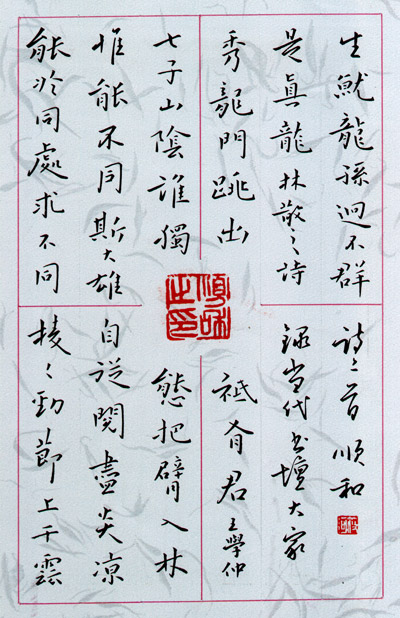 能於同處求不同
惟能不同斯大雄
七子山陰誰獨
秀龍門跳出
是真龍林散之詩
生就龍孫迥不群
棱〻勁節上干雲
自從閱盡炎涼
態把臂入林
祗有君王學仲
錄當代書壇大家
詩二首順和
順和之印